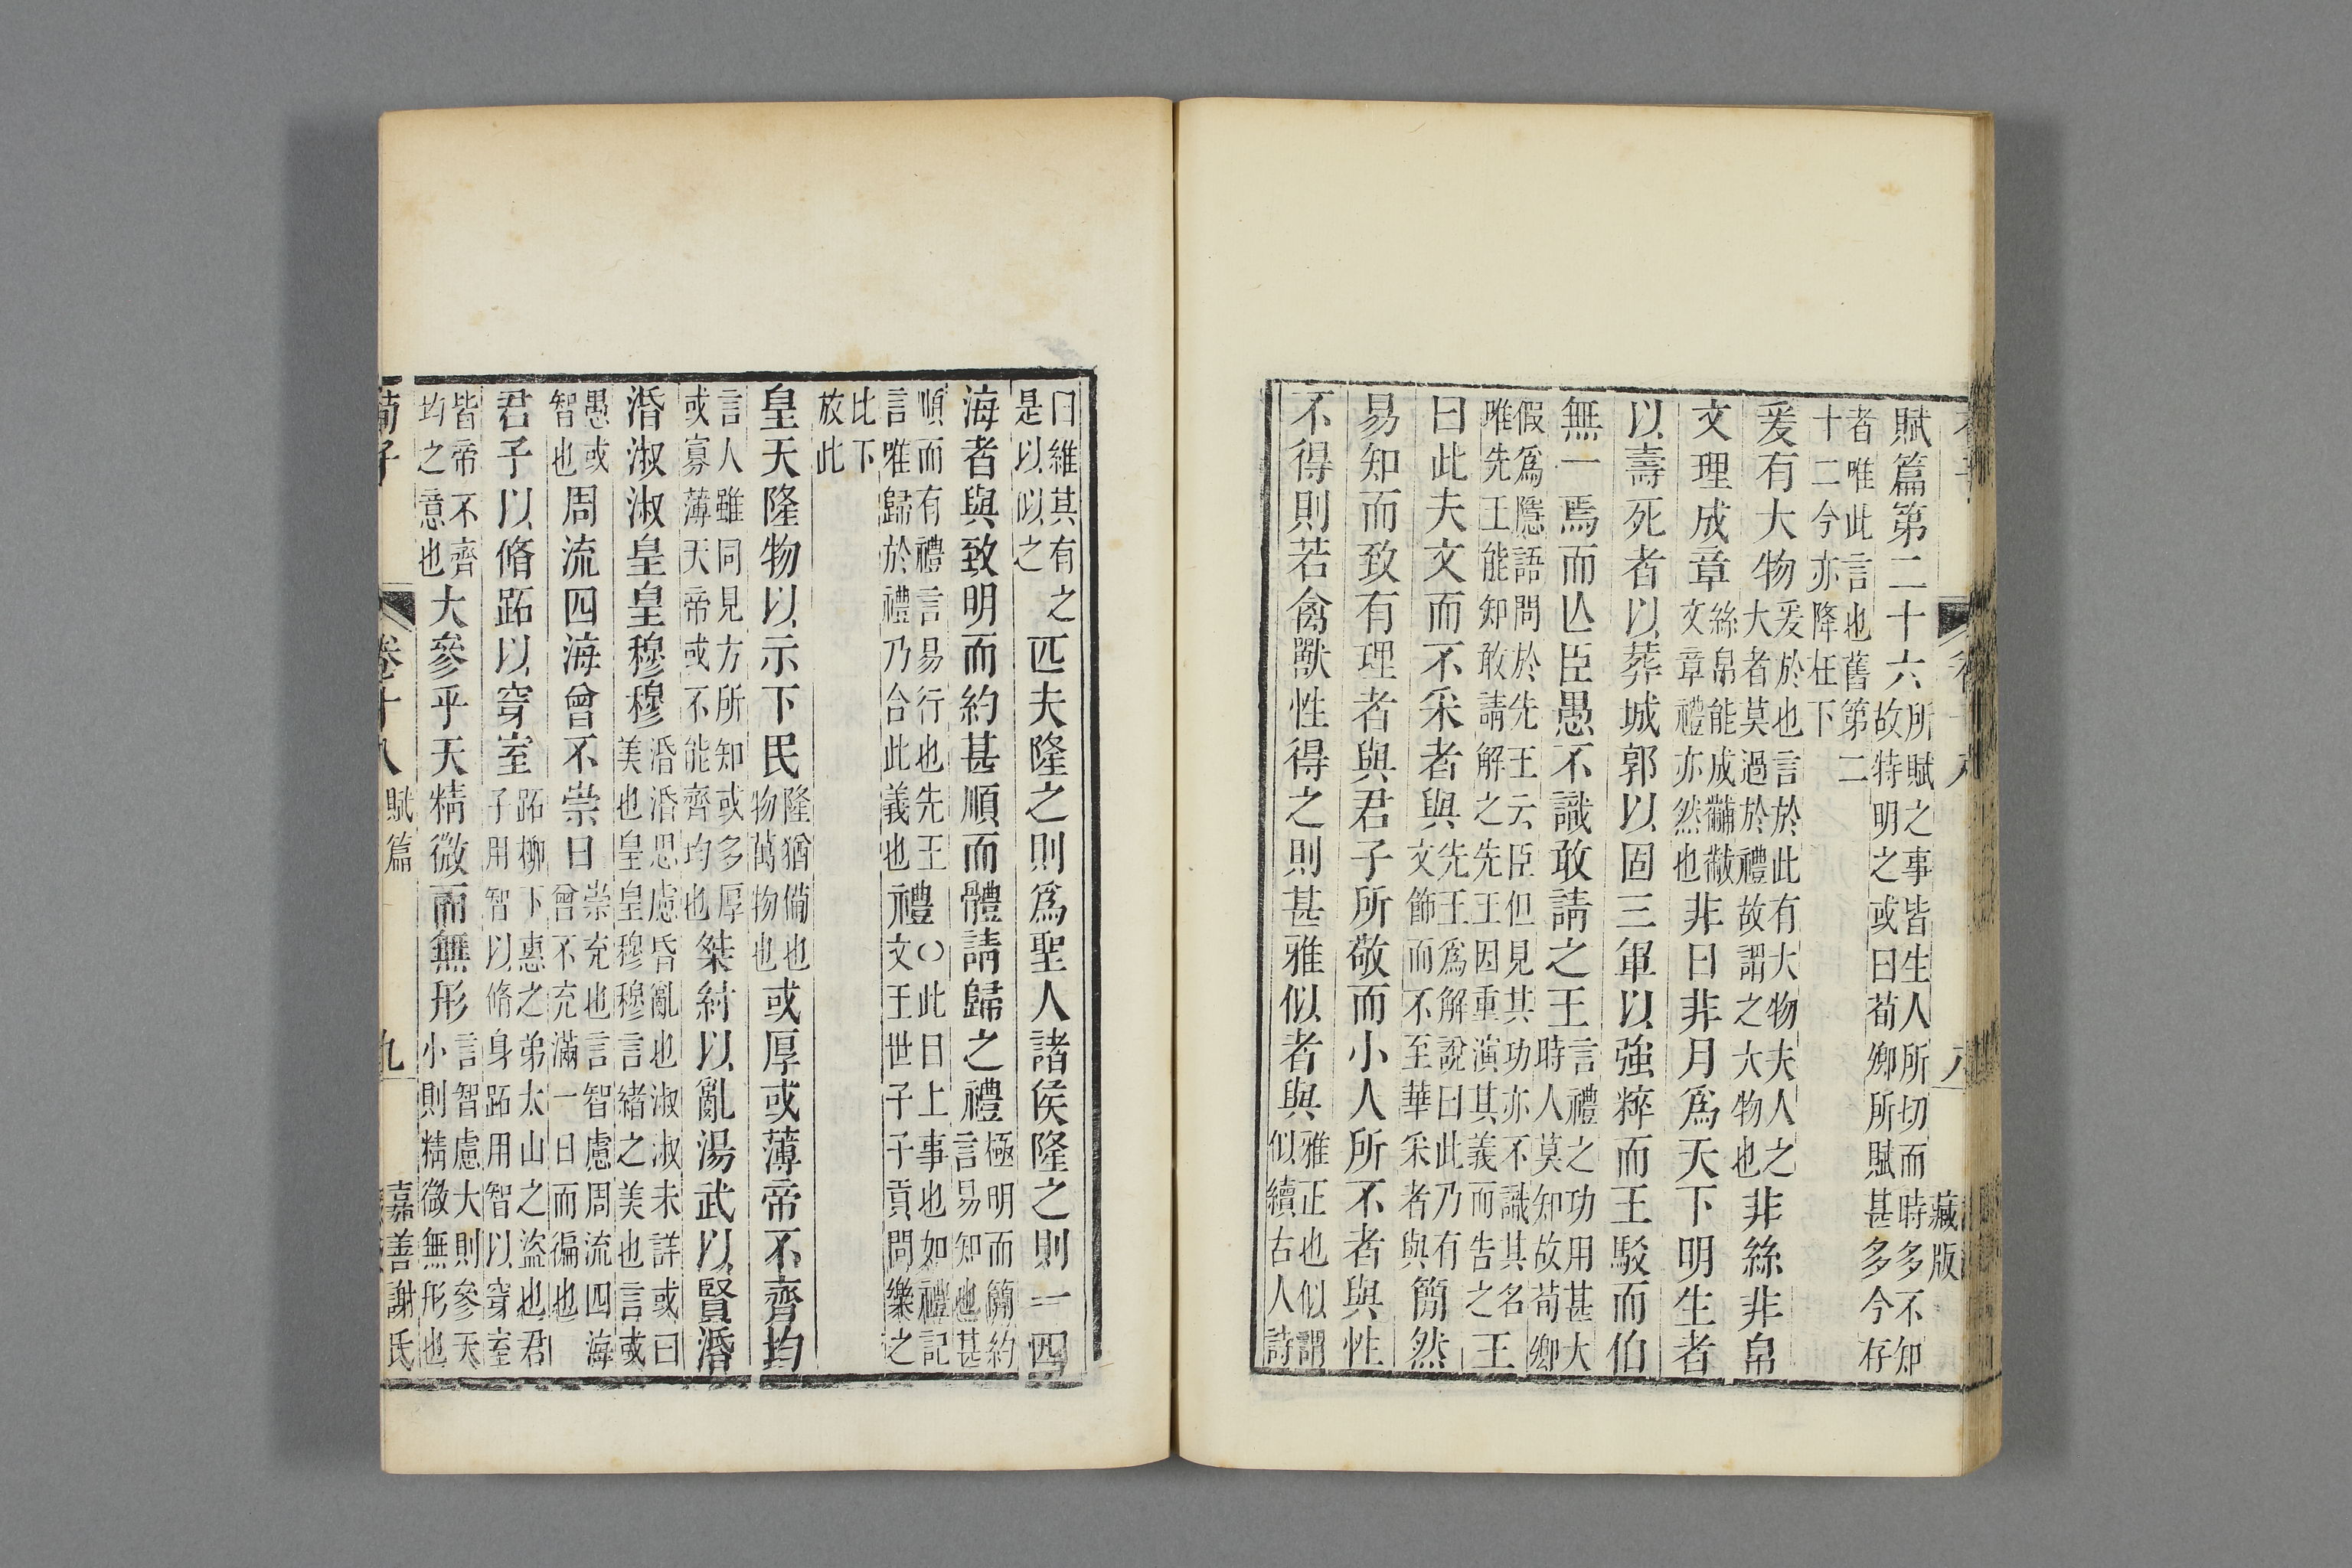 賦篇第二十六所賦之事皆生人所切而時多不知
故特明之或曰荀卿所賦甚多今存
者唯此言也舊第二
十二今亦降在下
爰有大物爰於也言於此有大物夫人之
大者莫過於禮故謂之大物也非絲非帛
文理成章絲帛能成黼黻
文章禮亦然也非日非月爲天下明生者
以壽死者以葬城郭以固三軍以強粹而王駁而伯
無一焉而亾臣愚不識敢請之王言禮之功用甚大
時人莫知故荀卿
假爲隱語問於先王云臣但見其功亦不識其名
唯先王能知敢請解之先王因重演其義而告之王
曰此夫文而不采者與先王爲解說曰此乃有
文飾而不至華采者與簡然
易知而致有理者與君子所敬而小人所不者與性
不得則若禽獸性得之則甚雅似者與雅正也似謂
似續古人詩
曰維其有之
是以似之匹夫隆之則爲聖人諸侯隆之則一四
海者與致明而約甚順而體請歸之禮極明而簡約
言易知也甚
順而有禮言易行也先王
言唯歸於禮乃合此義也禮〇此目上事也如禮記
文王世子子貢問樂之
比下
放此
皇天隆物以示下民隆猶備也
物萬物也或厚或薄帝不齊均
言人雖同見方所知或多厚
或寡薄天帝或不能齊均也桀紂以亂湯武以賢涽
涽淑淑皇皇穆穆涽涽思慮昏亂也淑淑未詳或曰
美也皇皇穆穆言緒之美也言或
愚或
智也周流四海曾不崇日崇充也言智慮周流四海
曾不充滿一日而徧也
君子以脩跖以穿室跖柳下惠之弟太山之盜也君
子用智以脩身跖用智以穿室
皆帝不齊
均之意也大參乎天精微而無形言智慮大則參天
小則精微無形也
荀子
卷十八
賦篇
九
嘉善謝氏
藏版